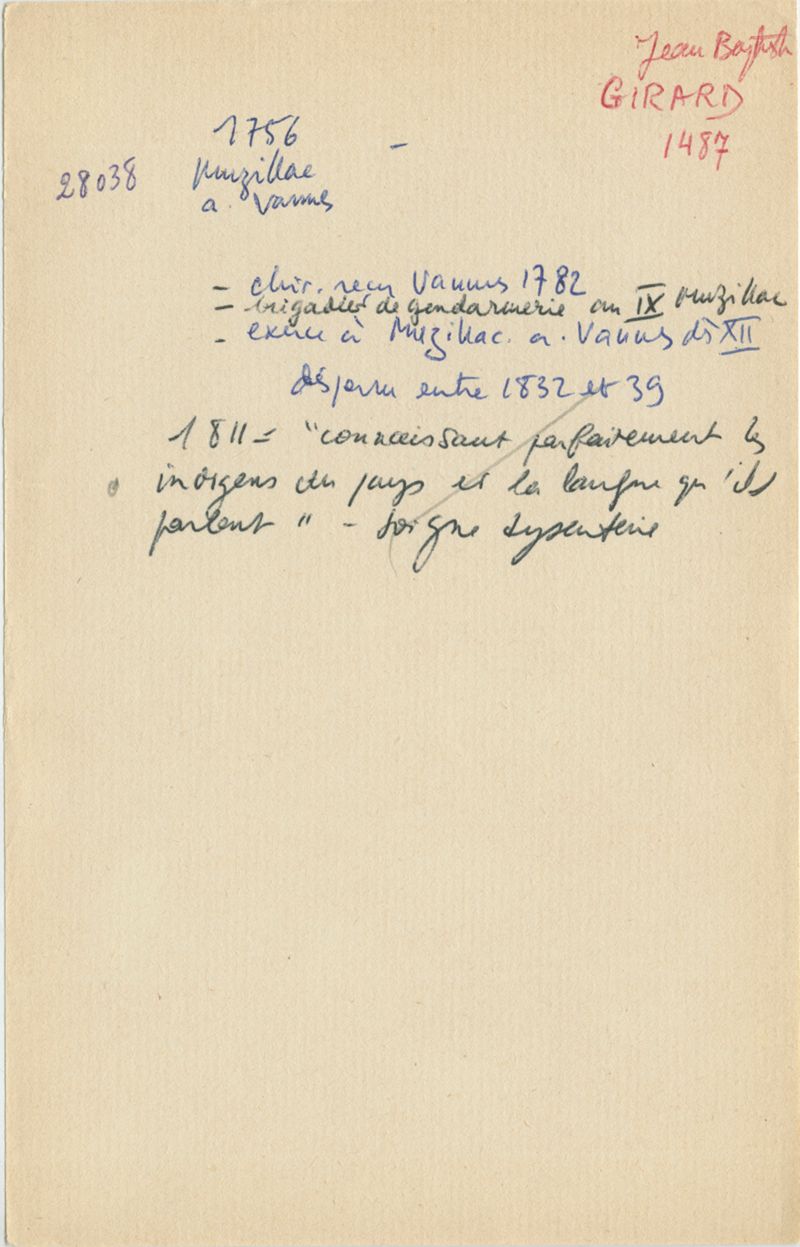 Jean Baptiste
GIRARD
1487
1756 -
28038 Muzillac
a. Vannes
- chir. reçu Vannes 1782
- brigadier de gendarmerie an IX Muzillac
- exerce à Muzillac. a. Vannes dès XII
disparu entre 1832 et 39
1811 = "connaissant parfaitement les
indigens du pays et la langue qu'ils
parlent" - soigne dysenterie